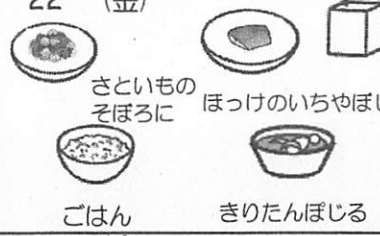 22 (金)
さといもの
そぼろに
ほっけのいちやぼし
ごはん
きりたんぽじる